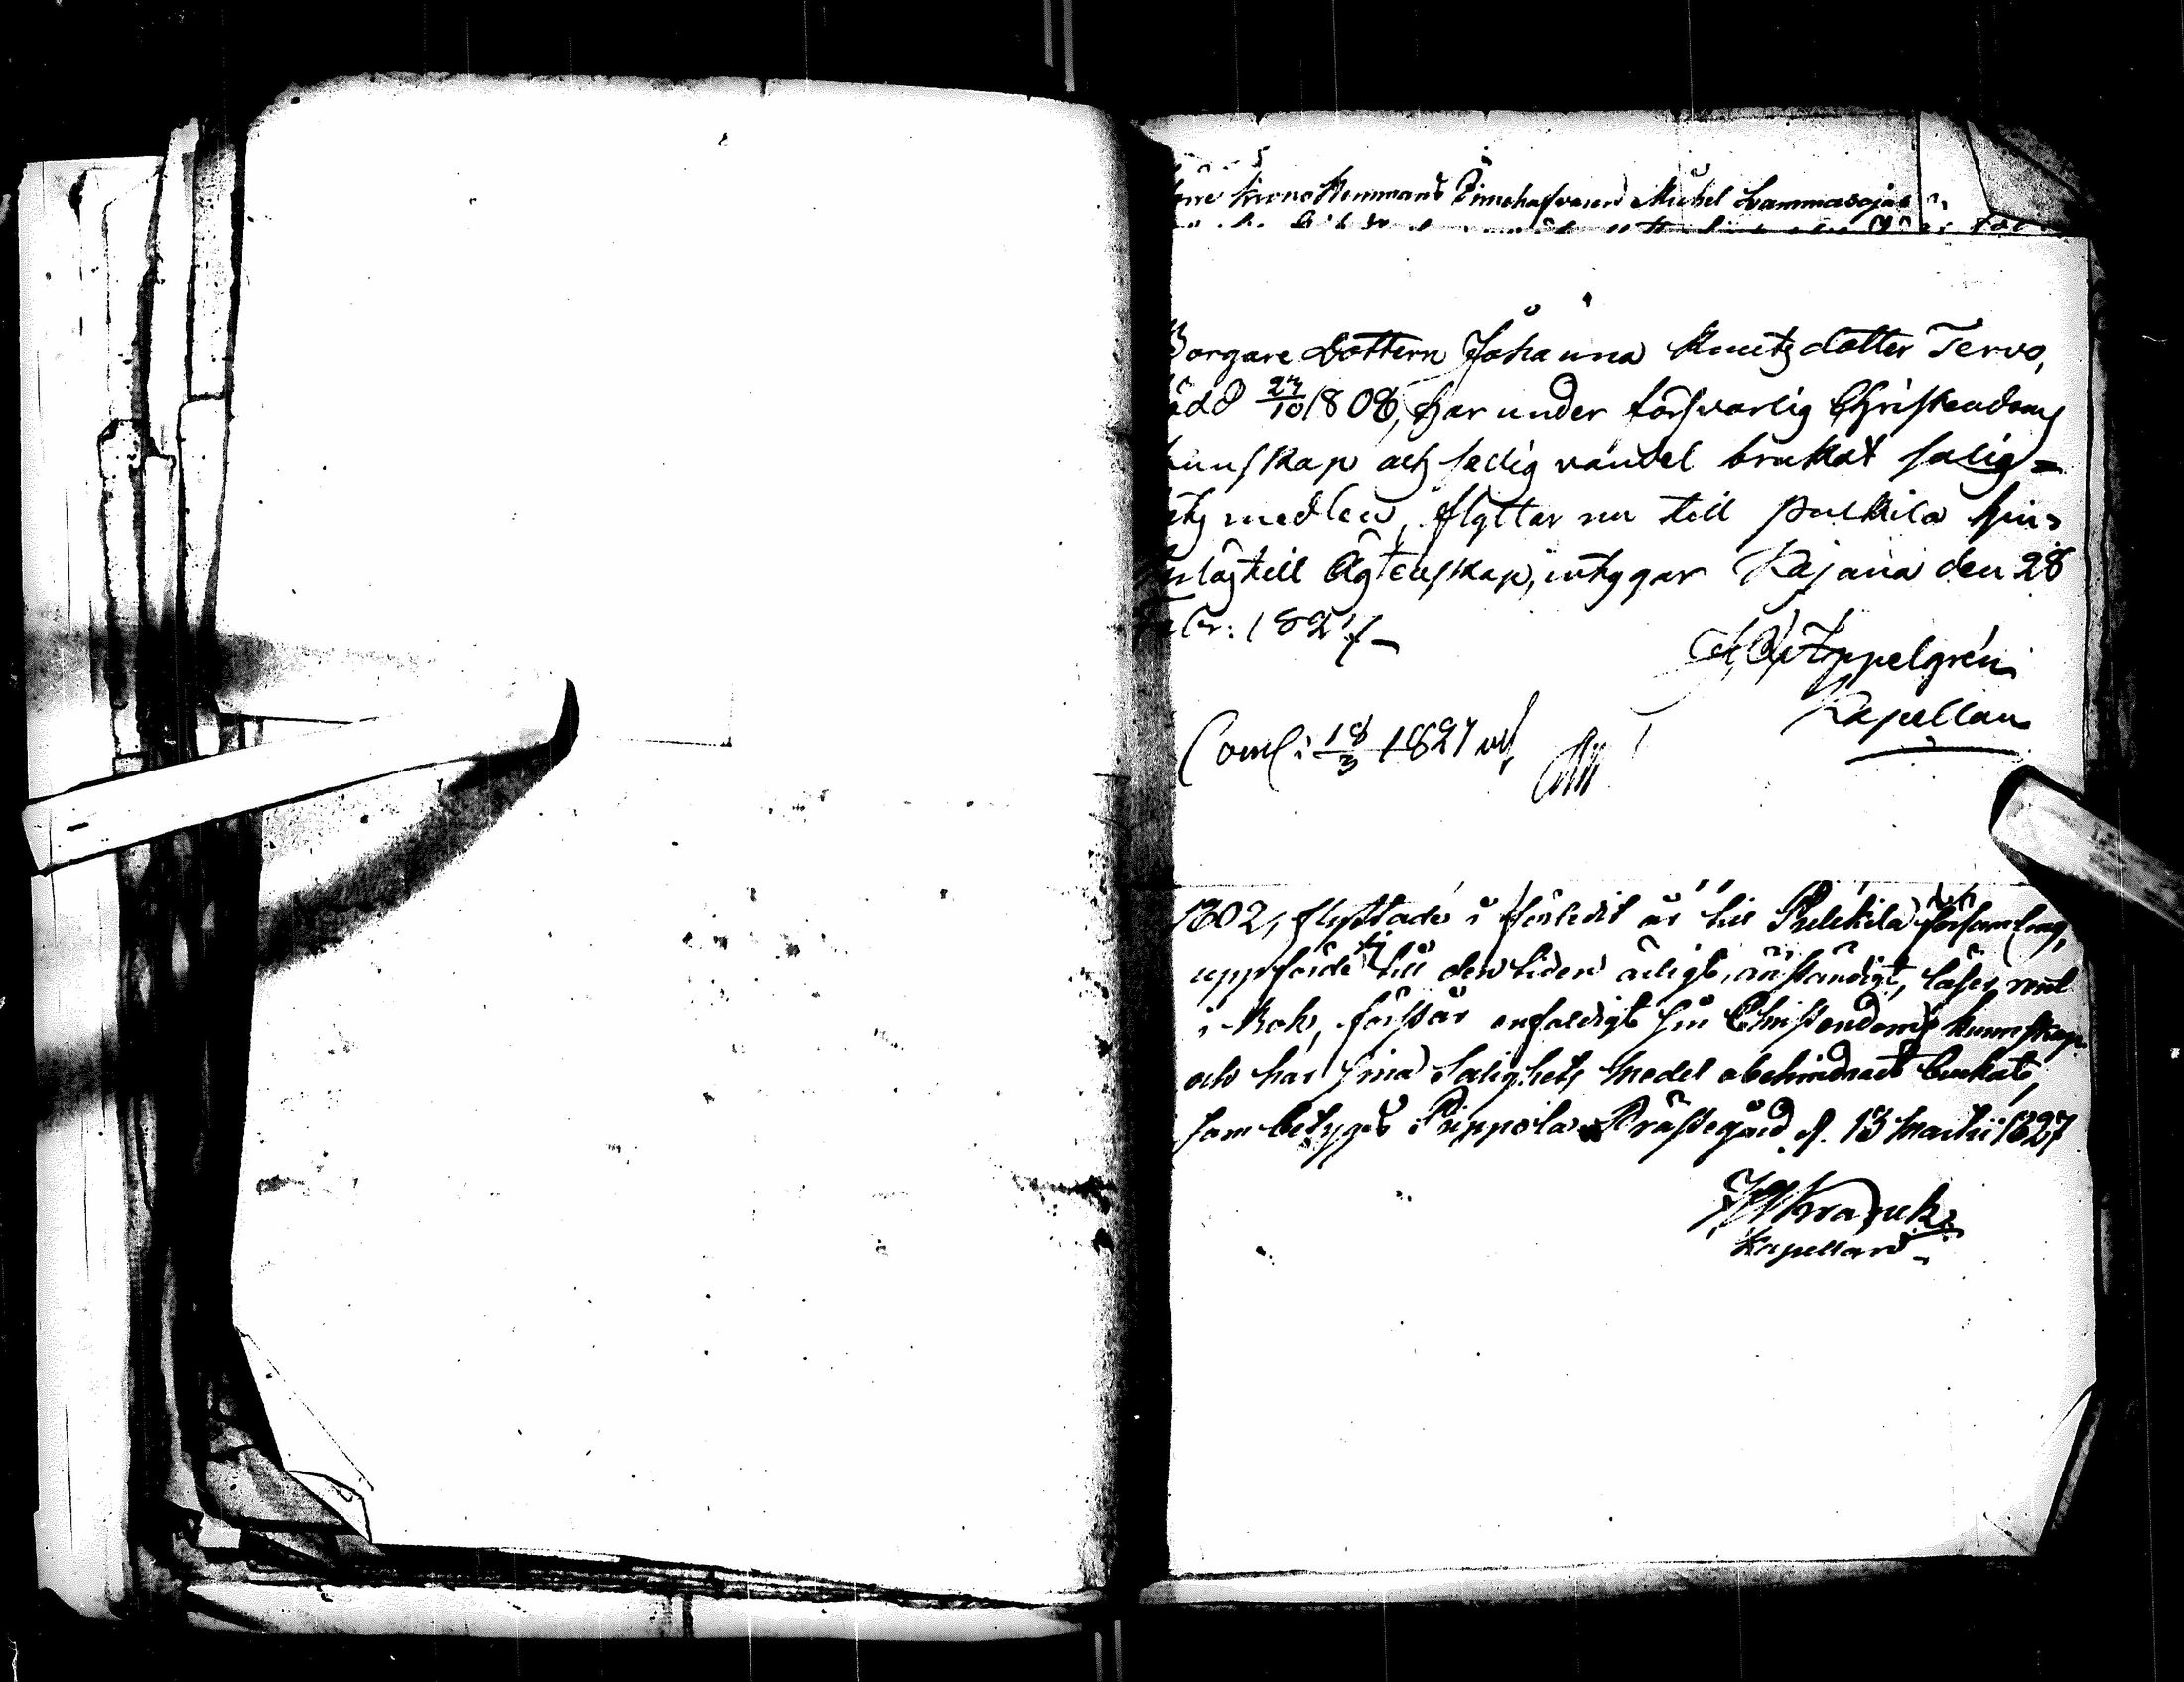 Krono Hemmans Innehafvaren Michel Lammasoja
Borgare Dottern Johanna Knutsdotter Tervo,
född 27/10 1808, har under försvarlig Christendoms
kunskap och sedig vandel brukat salig=
hets medlen, flyttar nu till Pulkila
till Ägtenskap, intygar Kajana den 28
Febr: 1827
Appelgrén
Kapellan
Coml: 18/3 1827
1802, flyttade i förledit år till Pulkila församling,
uppförde sig till den tiden ärligt, anständigt, läser väl
i Bok, förstår enfaldigt sin Christendoms kunskap
och har sina Salighets medel obehindradt brukat,
som betygas Pippola Prästegård d. 13 Martii 1827
Kranck
Kapellan